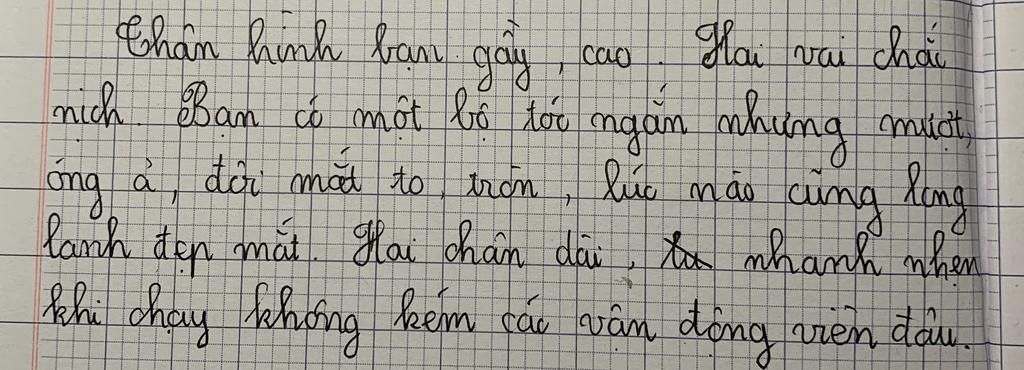 Thân hình bạn gầy, cao. Hai vai chắc
nịch. Bạn có một bộ tóc ngắn nhưng mượt,
óng ả, đôi mắt to, tròn, lúc nào cũng long
lanh đẹp mắt. Hai chân dài, nhanh nhẹn
khi chạy không kém các vận động viên đâu.